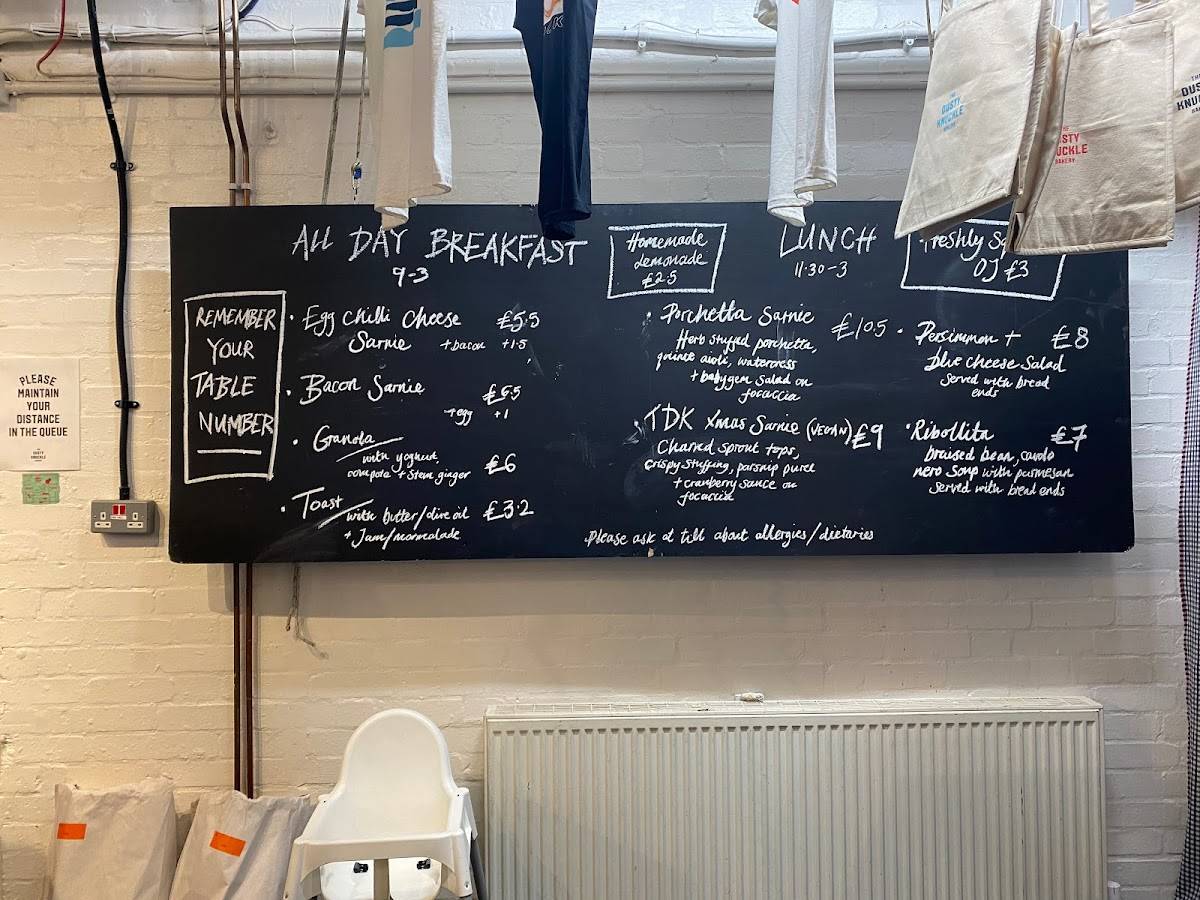 ALL DAY BREAKFAST
9-3
REMEMBER
YOUR
TABLE
NUMBER
· Egg Chilli Cheese £5.5
Sarnie +bacon +1.5
· Bacon Sarnie £6.5
+egg +1
· Granola
with yoghurt, £6
compote + Stem ginger
· Toast
with butter/olive oil £3.2
+ Jam/marmalade
Homemade
Lemonade
£2.5
LUNCH
11·30-3
Freshly
OJ £3
· Porchetta Sarnie £10.5
Herb stuffed porchetta,
quince aioli, watercress
+ babygem Salad on
focaccia
· TDK Xmas Sarnie (VEGAN) £9
Charred sprout tops,
crispy stuffing, parsnip puree
+ cranberry sauce on
focaccia
· Persimmon + £8
blue cheese Salad
Served with bread
ends
· Ribollita £7
braised bean, cavolo
nero Soup with parmesan
Served with bread ends
Please ask at till about allergies/dietaries
PLEASE
MAINTAIN
YOUR
DISTANCE
IN THE QUEUE
THE
DUSTY
KNUCKLE
BAKERY
THE
DUSTY
KNUCKLE
BAKERY